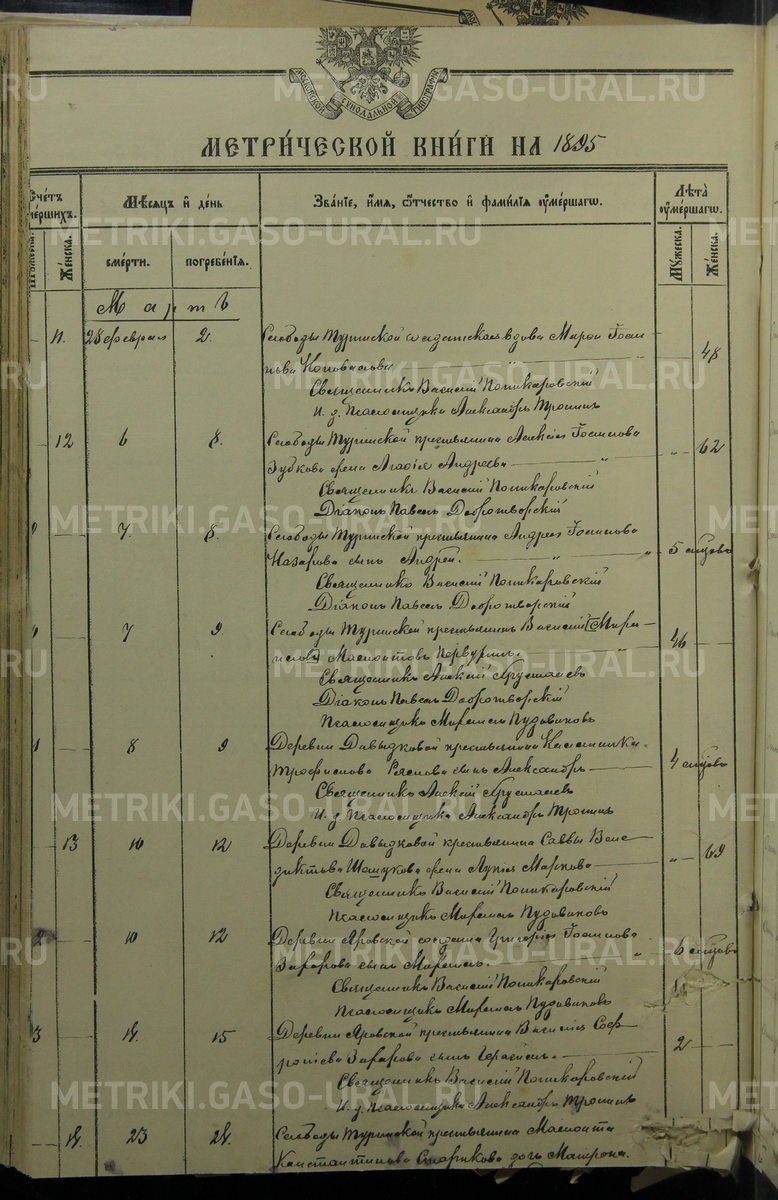 МОСКОВСКОЙ СѴНОДАЛЬНОЙ ТИПОГРАФІИ
МЕТРИ́ЧЕСКОЙ КНИ́ГИ НА 1895
Счетъ мершихъ. Мѣсяцъ и день Званіе, имя, отчество и фамилія умершагѡ. Лѣта умершагѡ.
Женска. смерти. погребенія. Мужеска. Женска.
Мартъ
11. 28 февраля 2. Слободы Туринской солдатская вдова Марѳа
Коновалова 48
Священникъ Василій Поликаровскій
И. д. Псаломщика Александръ Тронинъ
12 6 8. Слободы Туринской крестьянина Алексѣя Госипова
Зубкова жена Агафія Андреева " " 62
Священникъ Василій Поликаровскій
Діаконъ Павелъ Добротворскій
7. 8. Слободы Туринской крестьянина Андрея Госипова
Назарова сынъ Андрей. " " 5 мѣсцовъ
Священникъ Василій Поликаровскій
Діаконъ Павелъ Добротворскій
7 9 Слободы Туринской крестьянинъ Василій
Мамонтовъ Первухинъ. " 46
Священникъ Алексій Хрусталевъ
Діаконъ Павелъ Добротворскій
Псаломщикъ Миронъ Пудовиковъ
8 9 Деревни Давыдковой крестьянина
Трофимова сынъ Александръ 4 мѣсцовъ
Священникъ Алексій Хрусталевъ
И. д. Псаломщика Александръ Тронинъ
13 10 12 Деревни Давыдковой крестьянина Саввы Вене-
диктова Шашукова жена Лукія Маркова " 69
Священникъ Василій Поликаровскій
Псаломщикъ Миронъ Пудовиковъ
2 10 12 Деревни Яровской солдата Григорія Госипова
Захарова сынъ " 6 мѣсцовъ
Священникъ Василій Поликаровскій
Псаломщикъ Миронъ Пудовиковъ
3 14. 15 Деревни Яровской крестьянина Василія Соф-
роніева Захарова сынъ Герасимъ. 2
Священникъ Василій Поликаровскій
И. д. Псаломщика Александръ Тронинъ
14. 23 24. Слободы Туринской крестьянина Мамонта
Константинова Старикова дочь Матрона.
METRIKI.GASO-URAL.RU